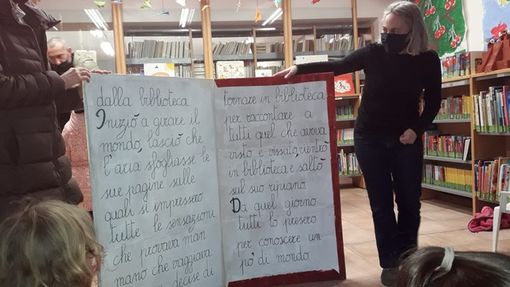 dalla biblioteca
Iniziò a girare il
mondo, lasciò che
l'aria sfogliasse le
sue pagine sulle
quali si impressero
tutte le sensazioni
che provava man
mano che viaggiava
decise di
tornare in biblioteca
per raccontare a
tutti quel che aveva
visto e vissuto, entrò
in biblioteca e saltò
sul suo ripiano.
Da quel giorno
tutti lo presero
per conoscere un
po' di mondo.